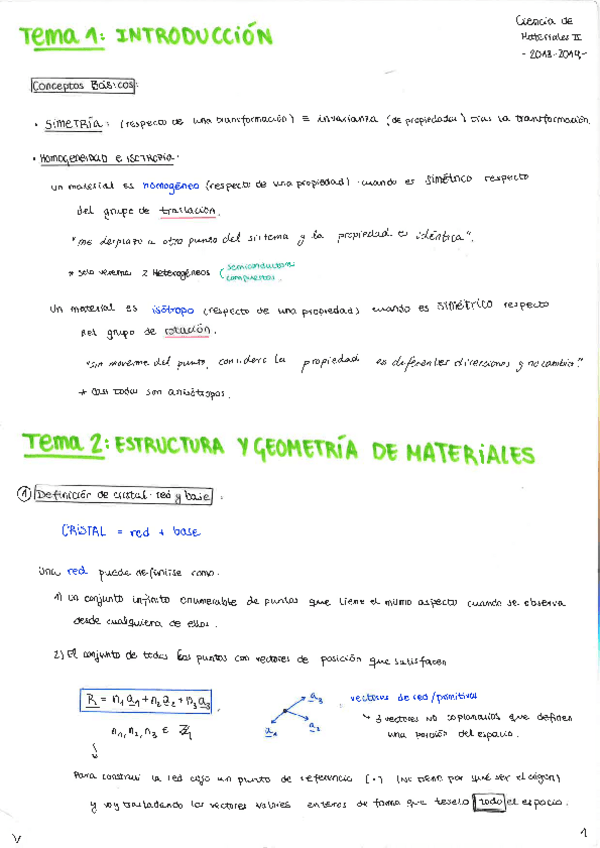 Tema 1: INTRODUCCIÓN
Ciencia de
Materiales II
- 2013-2014 -
Conceptos Básicos:
• SIMETRÍA: (respecto de una transformación) ≡ invarianza (de propiedades) tras la transformación.
• Homogeneidad e ISOTROPÍA.
Un material es homogéneo (respecto de una propiedad) cuando es simétrico respecto
del grupo de traslación.
"me desplazo a otro punto del sistema y la propiedad es idéntica".
* solo veremos 2 Heterogéneos (semiconductores
compuestos.
Un material es isótropo (respecto de una propiedad) cuando es simétrico respecto
del grupo de rotación.
"sin moverme del punto, considero la propiedad es diferentes direcciones y no cambia."
* Casi todos son anisótropos.
Tema 2: ESTRUCTURA Y GEOMETRÍA DE MATERIALES
① Definición de cristal. red y base.
CRISTAL = red + base
Una red puede definirse como.
1) Un conjunto infinito enumerable de puntos que tiene el mismo aspecto cuando se observa
desde cualquiera de ellos.
2) El conjunto de todos los puntos con vectores de posición que satisfacen
R = n₁a₁ + n₂a₂ + n₃a₃
n₁, n₂, n₃ ∈ ℤ
a₃
a₁
a₂
vectores de red/primitivos
↳ 3 vectores no coplanarios que definen
una porción del espacio.
Para construir la red cojo un punto de referencia (•) (no tiene por qué ser el origen)
y voy trasladando los vectores valores enteros de forma que teselo todo el espacio.
1